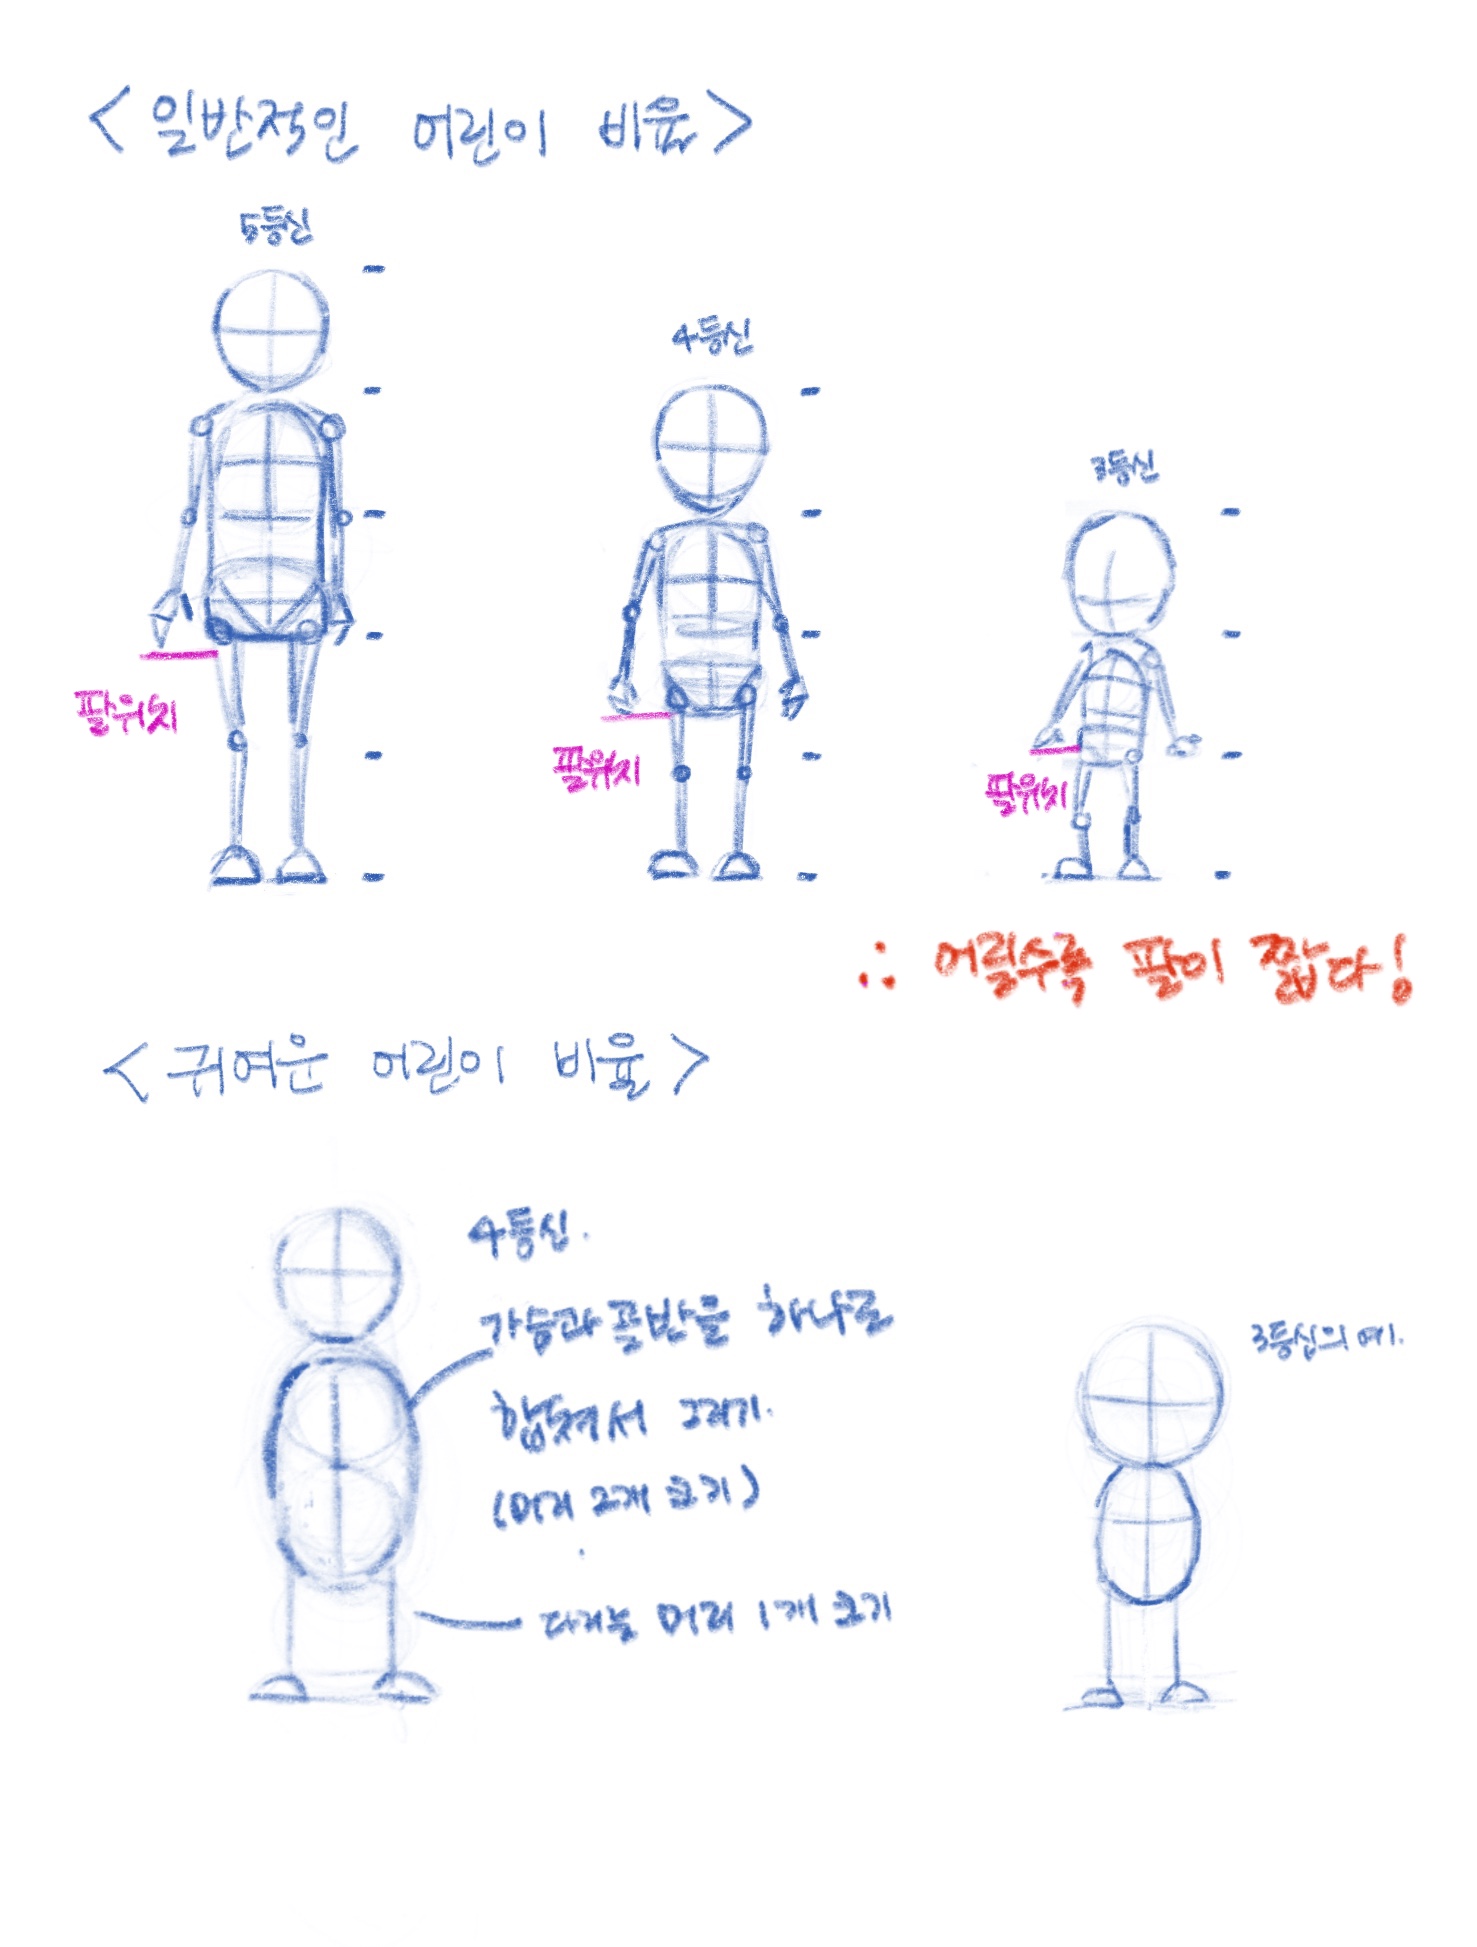 <일반적인 어린이 비율>
5등신
4등신
3등신
팔위치
팔위치
팔위치
∴ 어릴수록 팔이 짧다!
<귀여운 어린이 비율>
4등신.
가슴과 골반을 하나로
합쳐서 그리기.
(머리 2개 크기)
다리는 머리 1개 크기
3등신의 예.